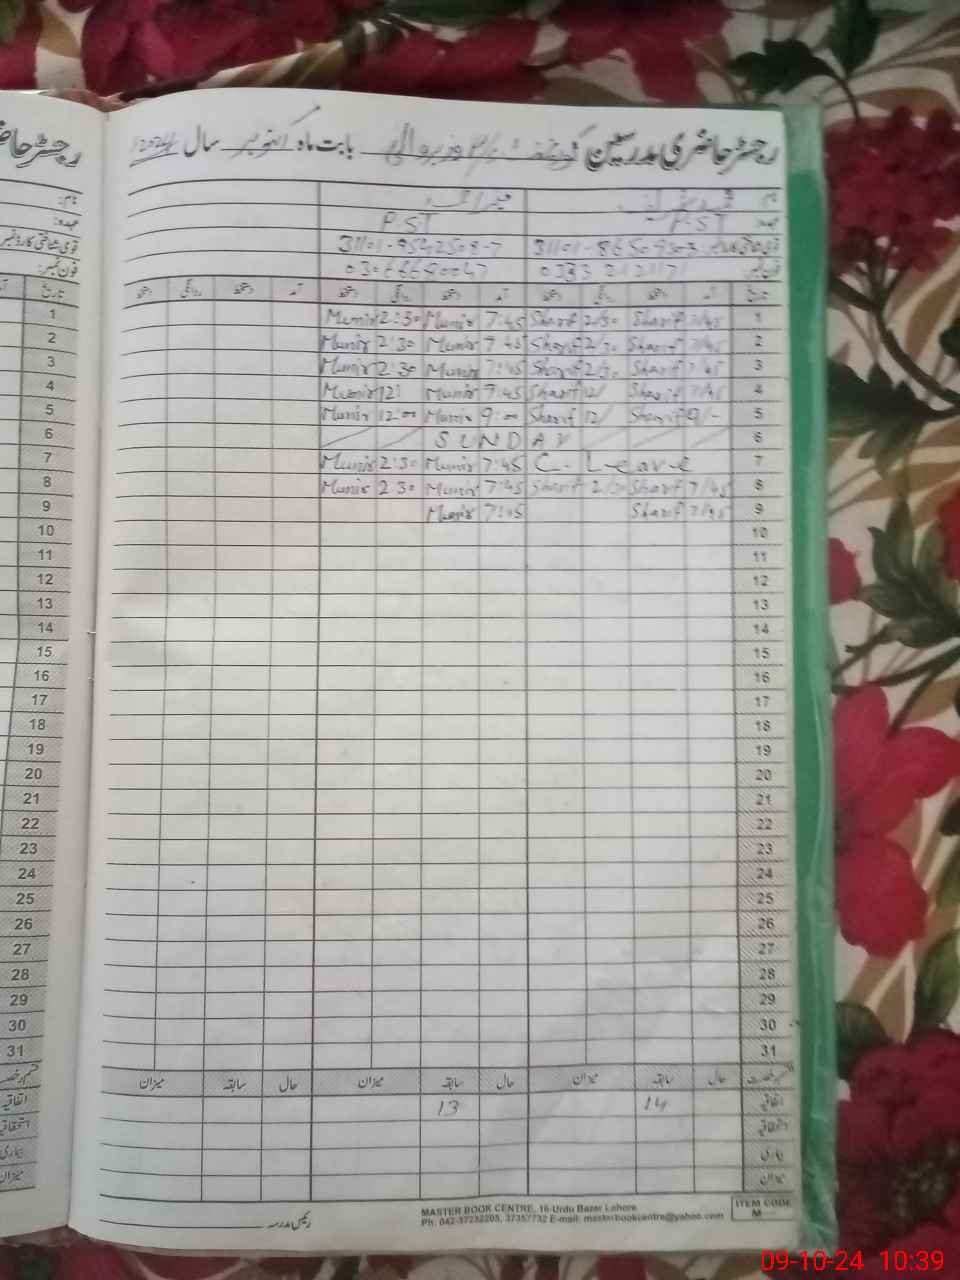 رجسٹر حاضری مدرسین گورنمنٹ بابت ماہ اکتوبر سال 2024
نام:
عہدہ: P.ST P.ST
فون نمبر:
تاریخ آمد دستخط روانگی دستخط آمد دستخط روانگی دستخط آمد دستخط روانگی دستخط
Munir 2:30 Munir 7:45 Sharif 2/30 Sharif 7/45 1
Munir 2:30 Munir 7:45 Sharif 2/30 Sharif 7/45 2
Munir 2:30 Munir 7:45 Sharif 2/30 Sharif 7/45 3
Munir 12: Munir 7:45 Sharif 12/ Sharif 7/45 4
Munir 12:00 Munir 9:00 Sharif 12/ Sharif 9/- 5
SUNDAY 6
Munir 2:30 Munir 7:45 C. Leave 7
Munir 2:30 Munir 7:45 Sharif 2/30 Sharif 7/45 8
Munir 7:45 Sharif 7/45 9
10
11
12
13
14
15
16
17
18
19
20
21
22
23
24
25
26
27
28
29
30
31
حال سابقہ میزان حال سابقہ میزان حال سابقہ میزان
اتفاقیہ 14 13
استحقاقیہ
بیماری
میزان
رئیس مدرسہ
MASTER BOOK CENTRE, 16-Urdu Bazar Lahore
Ph: 042-37232205, 37357732 E-mail: masterbookcentre@yahoo.com
ITEM CODE
M
رجسٹر
نام:
عہدہ:
قومی شناختی کارڈ نمبر
فون نمبر:
تاریخ
1
2
3
4
5
6
7
8
9
10
11
12
13
14
15
16
17
18
19
20
21
22
23
24
25
26
27
28
29
30
31
اتفاقیہ
استحقاقیہ
بیماری
میزان
09-10-24 10:39